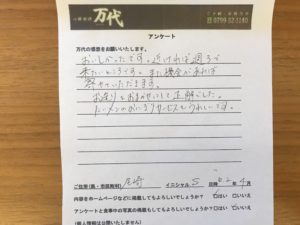 万代
0799-52-1140
アンケート
万代の感想をお願いいたします。
おいしかったです。近ければ週3で
来たいところです。また機会があれば
寄せていただきます。
お造りもおまかせにして正解でした。
ラーメンのおにぎりサービスもうれしいです。
ご住所(県・市区町村) 尼崎 イニシャル
年 4 月
内容をホームページなどに掲載してもよろしいでしょうか? はい いいえ
アンケートと食事中の写真の掲載もしてもよろしいでしょうか? はい いいえ
(個人情報は公開いたしません)